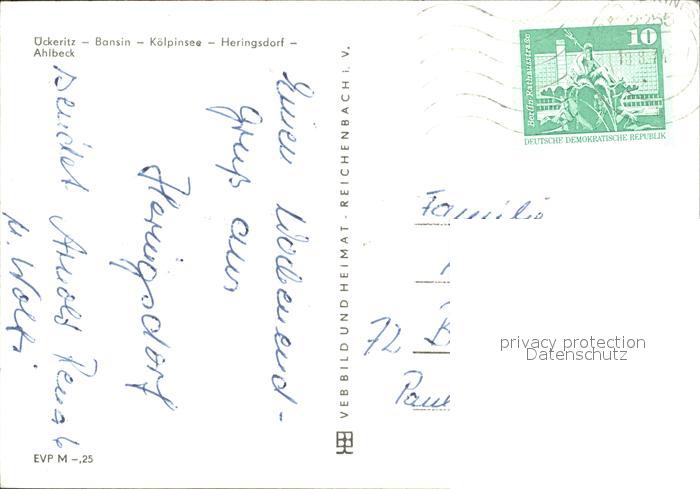 Ückeritz – Bansin – Kölpinsee – Heringsdorf –
Ahlbeck
Einen Wochenend-
gruß aus
Heringsdorf
sendet Arnold Renate
u. Wolf.
EVP M –,25
VEB BILD UND HEIMAT · REICHENBACH i. V.
10
Berlin, Rathausstraße
DEUTSCHE DEMOKRATISCHE REPUBLIK
Familie
72 B
Paul
privacy protection
Datenschutz